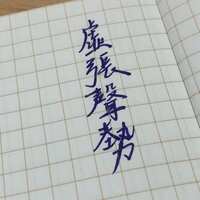 虛張聲勢